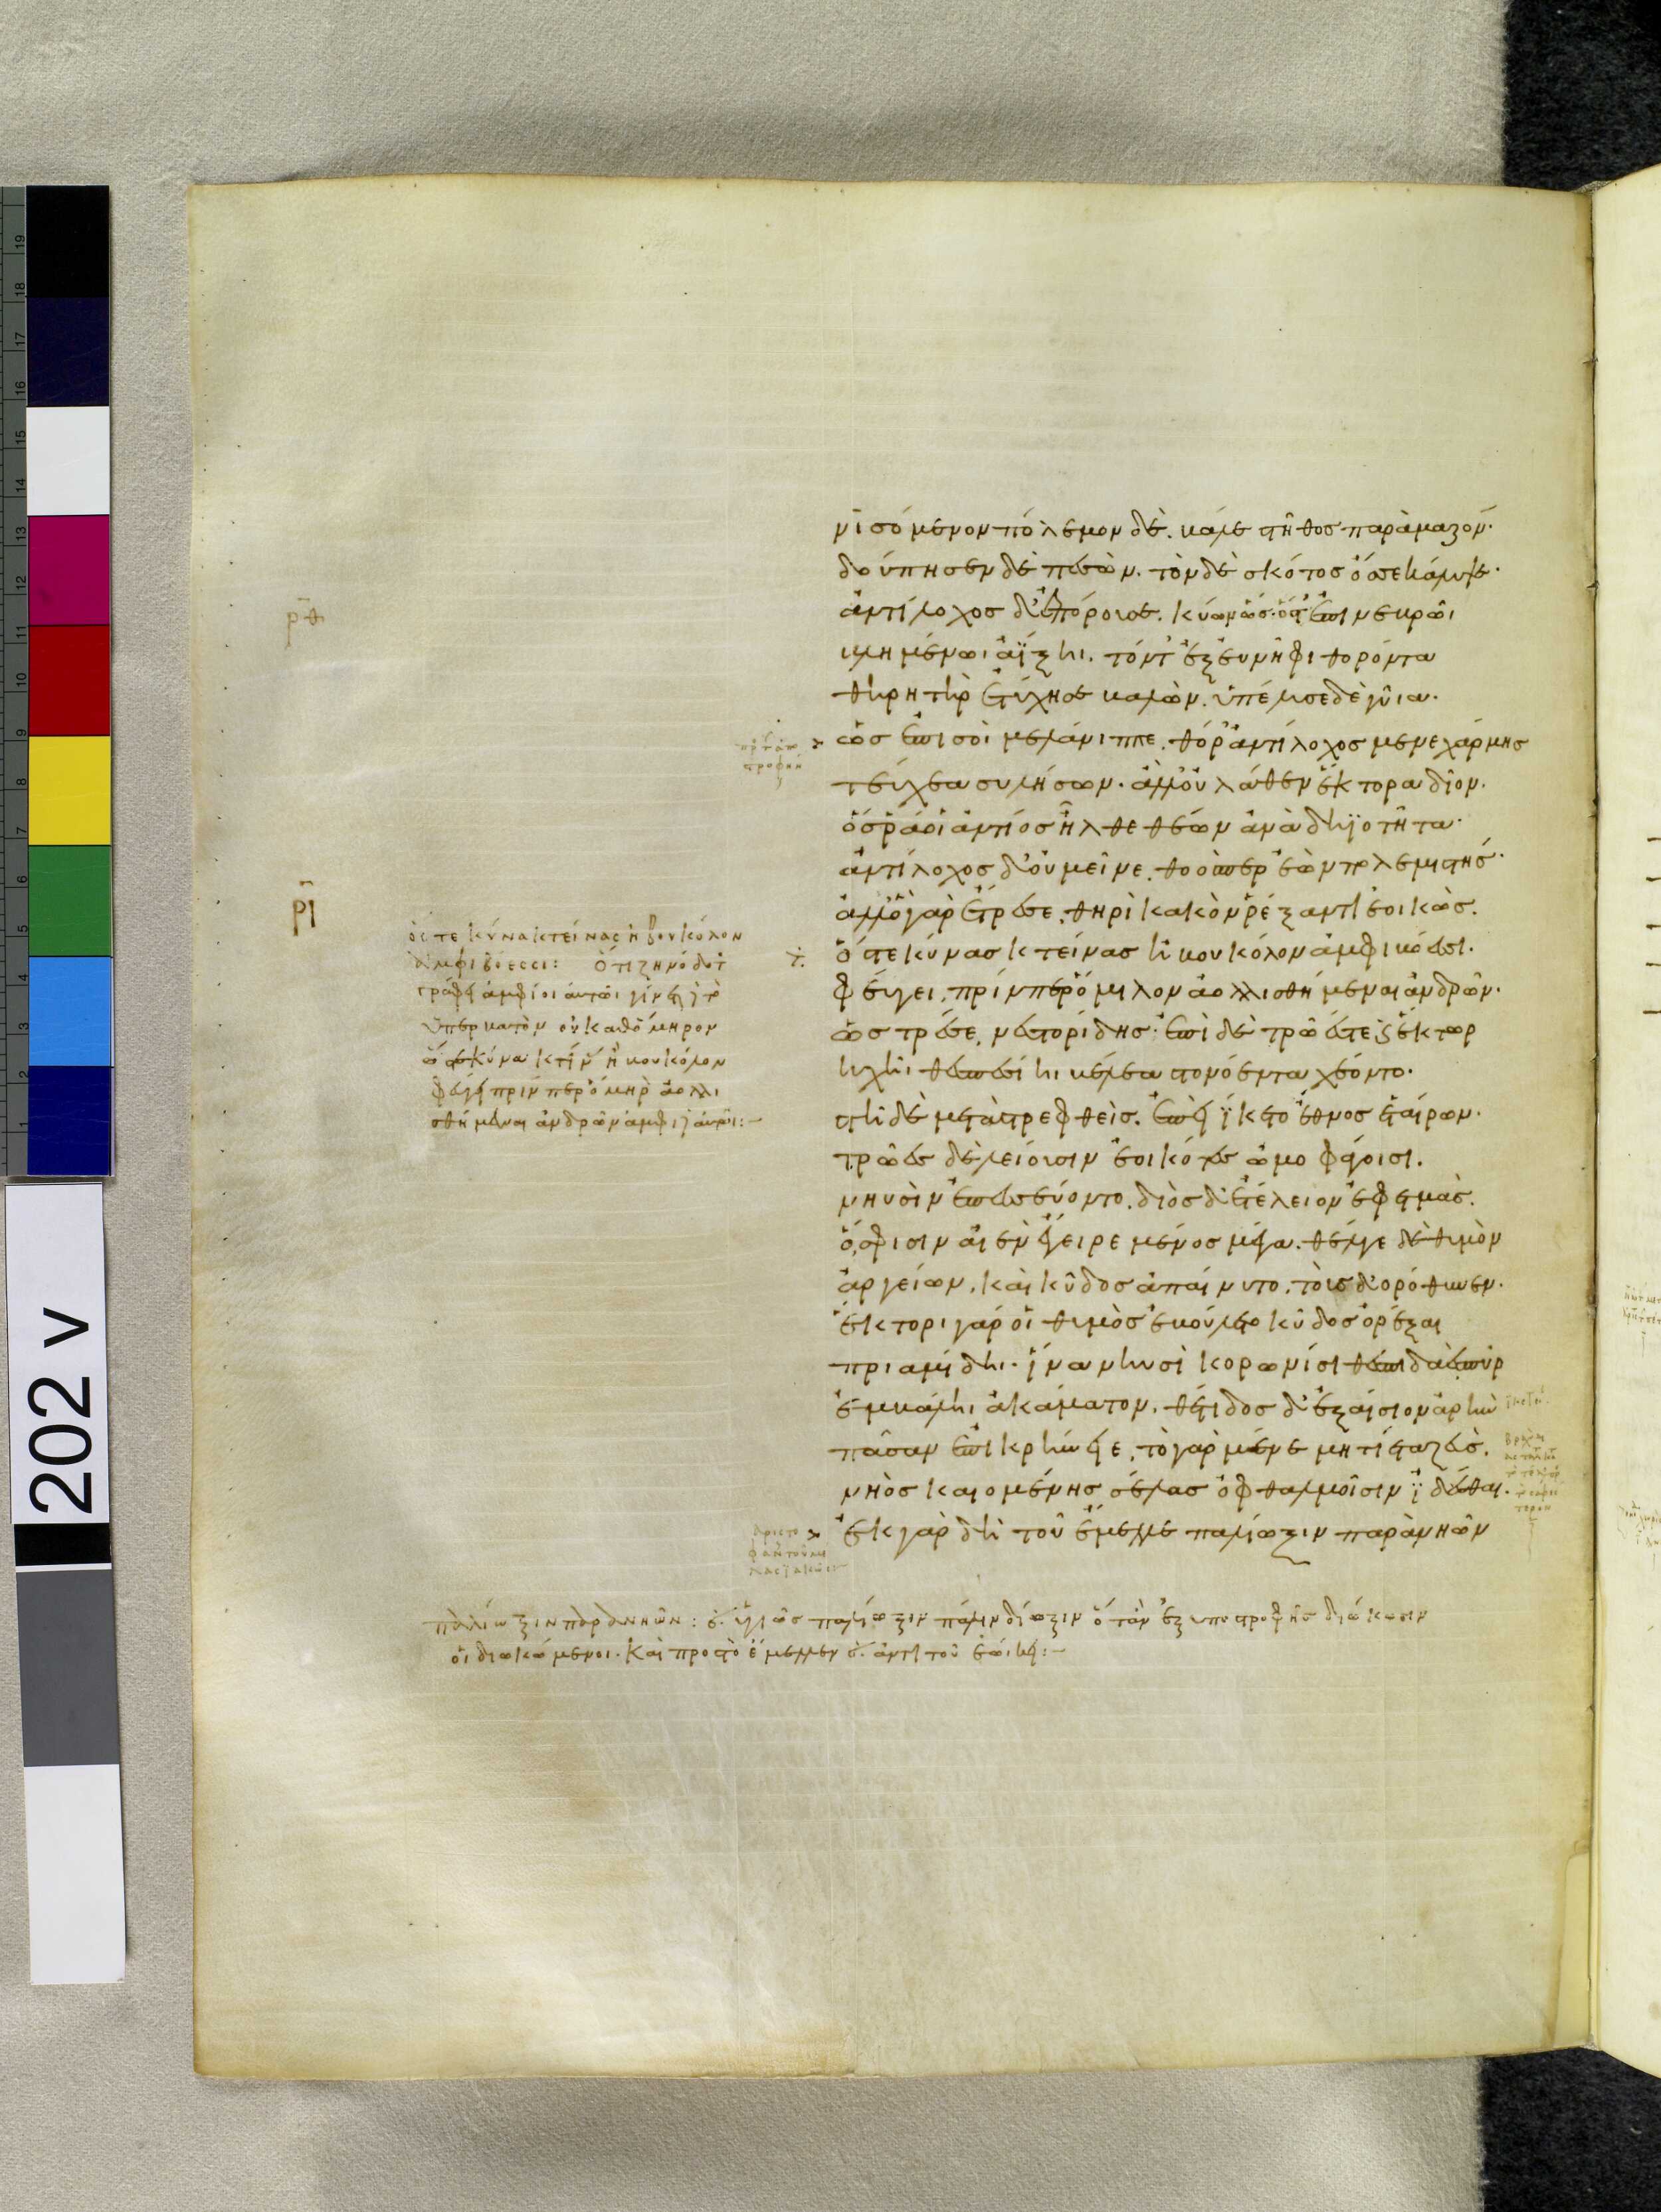 νισόμενον πόλεμον δὲ. βάλε στῆθος παρὰ μαζόν·
δούπησεν δὲ πεσών. τὸν δὲ σκότος ὄσσε κάλυψε·
ἀντίλοχος δ' ἐπόρουσε. κύων ὥς· ὅς τ' ἐπὶ νεβρῶι
βλημένωι ἀΐξηι. τόν τ' ἐξ εὐνῆφι θορόντα
θηρητὴρ ἐτύχησε βαλών. ὑπέλυσε δὲ γυῖα·
ὣς ἐπὶ σοὶ μελάνιππε. θόρ' ἀντίλοχος μενεχάρμης
τεύχεα συλήσων· ἀλλ' οὐ λάθεν ἕκτορα δῖον.
ὅς ῥά οἱ ἀντίος ἦλθε θέων ἀνὰ δηϊοτῆτα·
ἀντίλοχος δ' οὐ μεῖνε. θοός περ ἐὼν πολεμιστής·
ἀλλ' ὅ γὰρ ἔτρεσε. θηρὶ κακὸν ῥέξαντι ἐοικώς.
ὅς τε κύνας κτείνας ἢ βουκόλον ἀμφὶ βόεσσι.
φεύγει. πρίν περ ὅμιλον ἀολλισθήμεναι ἀνδρῶν.
ὣς τρέσε. νεστορίδης· ἐπὶ δὲ τρῶές τε καὶ ἕκτωρ
ἠχῆι θεσπεσίηι βέλεα στονόεντα χέοντο.
στῆ δὲ μεταστρεφθείς. ἐπεὶ ἵκετο ἔθνος ἑταίρων.
τρῶες δὲ λείουσιν ἐοικότες ὠμοφάγοισι.
νηυσὶν ἐπεσσεύοντο. διὸς δ' ἐτέλειον ἐφετμάς.
ὅ σφισιν αἰὲν ἔγειρε μένος μέγα. θέλγε δὲ θυμὸν
ἀργείων. καὶ κῦδος ἀπαίνυτο. τοὺς δ' ὀρόθυνεν.
ἕκτορι γάρ οἱ θυμὸς ἐβούλετο κῦδος ὀρέξαι
πριαμίδηι. ἵνα νηυσὶ κορωνίσι θεσπιδαὲς πῦρ
ἐμβάληι ἀκάματον. θέτιδος δ' ἐξαίσιον ἀρὴν
πᾶσαν ἐπικρήνειε. τὸ γὰρ μένε μητίετα ζεύς.
νηὸς καιομένης σέλας ὀφθαλμοῖσιν ἰδέσθαι.
ἐκ γὰρ δὴ τοῦ ἔμελλε παλίωξιν παρὰ νηῶν
ρθ
ρι
ὅς τε κύνα κτείνας ἢ βουκόλον
ἀμφὶ βόεσσι: ὅτι ζηνόδοτ
γράφει ἀμφὶ οἷ αὐτῶι γίνεται γὰρ
ὑπερβατὸν οὐ καθ' ὅμηρον
ὅς κύνα κτείν ἢ βουκόλον
φεύγει πρίν περ ὅμηρ ἀολλι
σθήμεναι ἀνδρῶν ἀμφι ἑαυτῶι:
παλίωξιν παρὰ νηῶν: παλίωξιν πάλιν δίωξιν ὅταν ἐξ ὑποστροφῆς διώκωσιν
οἱ διωκόμενοι. καὶ πρὸς τὸ ἔμελλεν ἀντὶ τοῦ ἐώικει:
202 v